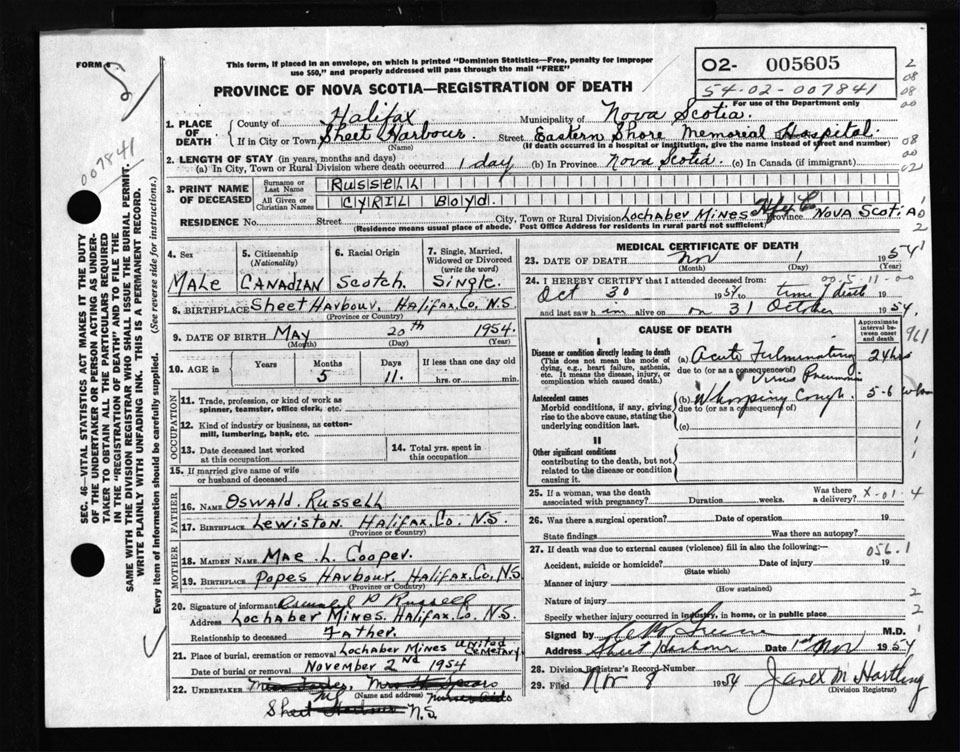 FORM 6
This form, if placed in an envelope, on which is printed "Dominion Statistics—Free, penalty for improper
use $50," and properly addressed will pass through the mail "FREE"
PROVINCE OF NOVA SCOTIA—REGISTRATION OF DEATH
02- 005605
54-02-007841
For use of the Department only
2
08
00
08
00
02
007841
SEC. 46—VITAL STATISTICS ACT MAKES IT THE DUTY
OF THE UNDERTAKER OR PERSON ACTING AS UNDER-
TAKER TO OBTAIN ALL THE PARTICULARS REQUIRED
IN THE "REGISTRATION OF DEATH" AND TO FILE THE
SAME WITH THE DIVISION REGISTRAR WHO SHALL ISSUE THE BURIAL PERMIT.
WRITE PLAINLY WITH UNFADING INK. THIS IS A PERMANENT RECORD.
Every item of information should be carefully supplied. (See reverse side for instructions.)
1. PLACE OF DEATH
County of Halifax Municipality of Nova Scotia.
If in City or Town Sheet Harbour. Street Eastern Shore Memorial Hospital.
(Name) (If death occurred in a hospital or institution, give the name instead of street and number)
2. LENGTH OF STAY (in years, months and days)
(a) In City, Town or Rural Division where death occurred 1 day (b) In Province Nova Scotia. (c) In Canada (if immigrant)
3. PRINT NAME OF DECEASED
Surname or Last Name RUSSELL
All Given or Christian Names CYRIL BOYD.
RESIDENCE No. Street City, Town or Rural Division Lochaber Mines Province Nova Scotia
(Residence means usual place of abode. Post Office Address for residents in rural parts not sufficient)
4. Sex
Male
5. Citizenship (Nationality)
Canadian
6. Racial Origin
Scotch.
7. Single, Married, Widowed or Divorced (write the word)
Single.
8. BIRTHPLACE Sheet Harbour, Halifax, Co. N.S.
(Province or Country)
9. DATE OF BIRTH May 20th 1954.
(Month) (Day) (Year)
10. AGE in Years Months Days If less than one day old
5 11. hrs. or min.
OCCUPATION
11. Trade, profession, or kind of work as
spinner, teamster, office clerk, etc.
12. Kind of industry or business, as cotton-
mill, lumbering, bank, etc.
13. Date deceased last worked
at this occupation
14. Total yrs. spent in
this occupation
15. If married give name of wife
or husband of deceased
FATHER
16. NAME Oswald. Russell
17. BIRTHPLACE Lewiston. Halifax, Co. N.S.
(Province or Country)
MOTHER
18. MAIDEN NAME Mae. L. Cooper.
19. BIRTHPLACE Popes Harbour. Halifax, Co. N.S
(Province or Country)
20. Signature of informant Oswald P Russell
Address Lochaber Mines. Halifax, Co. N.S.
Relationship to deceased Father.
21. Place of burial, cremation or removal Lochaber Mines United Cemetary.
Date of burial or removal November 2nd 1954
22. UNDERTAKER
(Name and address)
Sheet Harbour N.S.
MEDICAL CERTIFICATE OF DEATH
23. DATE OF DEATH Nov 1 1954
(Month) (Day) (Year)
24. I HEREBY CERTIFY that I attended deceased from:
005-11-00
Oct 30 1954 to time of death
and last saw him alive on 31 October 1954.
CAUSE OF DEATH
Approximate interval between onset and death
961
I
Disease or condition directly leading to death
(This does not mean the mode of
dying, e.g., heart failure, asthenia,
etc. It means the disease, injury, or
complication which caused death.)
(a) Acute Fulminating
due to (or as a consequence of)
Virus Pneumonia
24 hrs
Antecedent causes
Morbid conditions, if any, giving
rise to the above cause, stating the
underlying condition last.
(b) Whooping Cough.
due to (or as a consequence of)
5-6
(c)
II
Other significant conditions
contributing to the death, but not
related to the disease or condition
causing it.
25. If a woman, was the death
associated with pregnancy? Duration weeks. Was there
a delivery?
X-01 4
26. Was there a surgical operation? Date of operation 19
State findings Was there an autopsy?
27. If death was due to external causes (violence) fill in also the following:—
056.1
Accident, suicide or homicide? Date of injury 19
(State which)
Manner of injury
(How sustained)
Nature of injury
Specify whether injury occurred in industry, in home, or in public place
2
2
Signed by M.D.
Address Sheet Harbour Date 1st Nov 1954
28. Division Registrar's Record Number
29. Filed Nov 8 1954 Janet M Hartling
(Division Registrar)